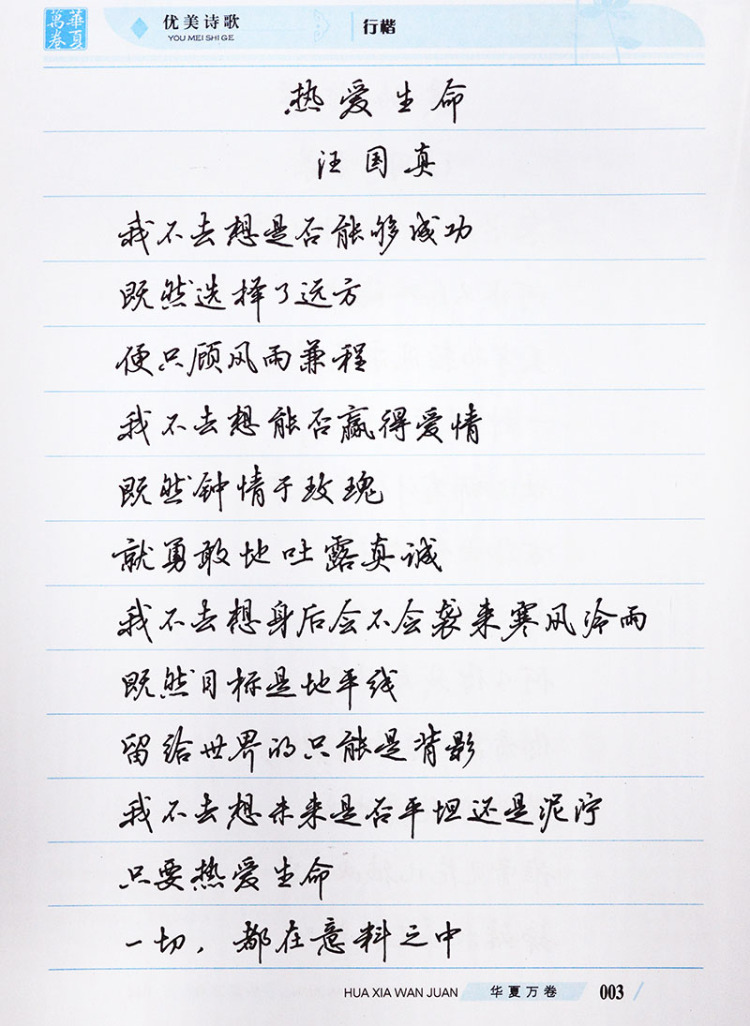 華夏萬卷
优美诗歌
YOU MEI SHI GE
行楷
热爱生命
汪国真
我不去想是否能够成功
既然选择了远方
便只顾风雨兼程
我不去想能否赢得爱情
既然钟情于玫瑰
就勇敢地吐露真诚
我不去想身后会不会袭来寒风冷雨
既然目标是地平线
留给世界的只能是背影
我不去想未来是否平坦还是泥泞
只要热爱生命
一切，都在意料之中
HUA XIA WAN JUAN 华夏万卷 003